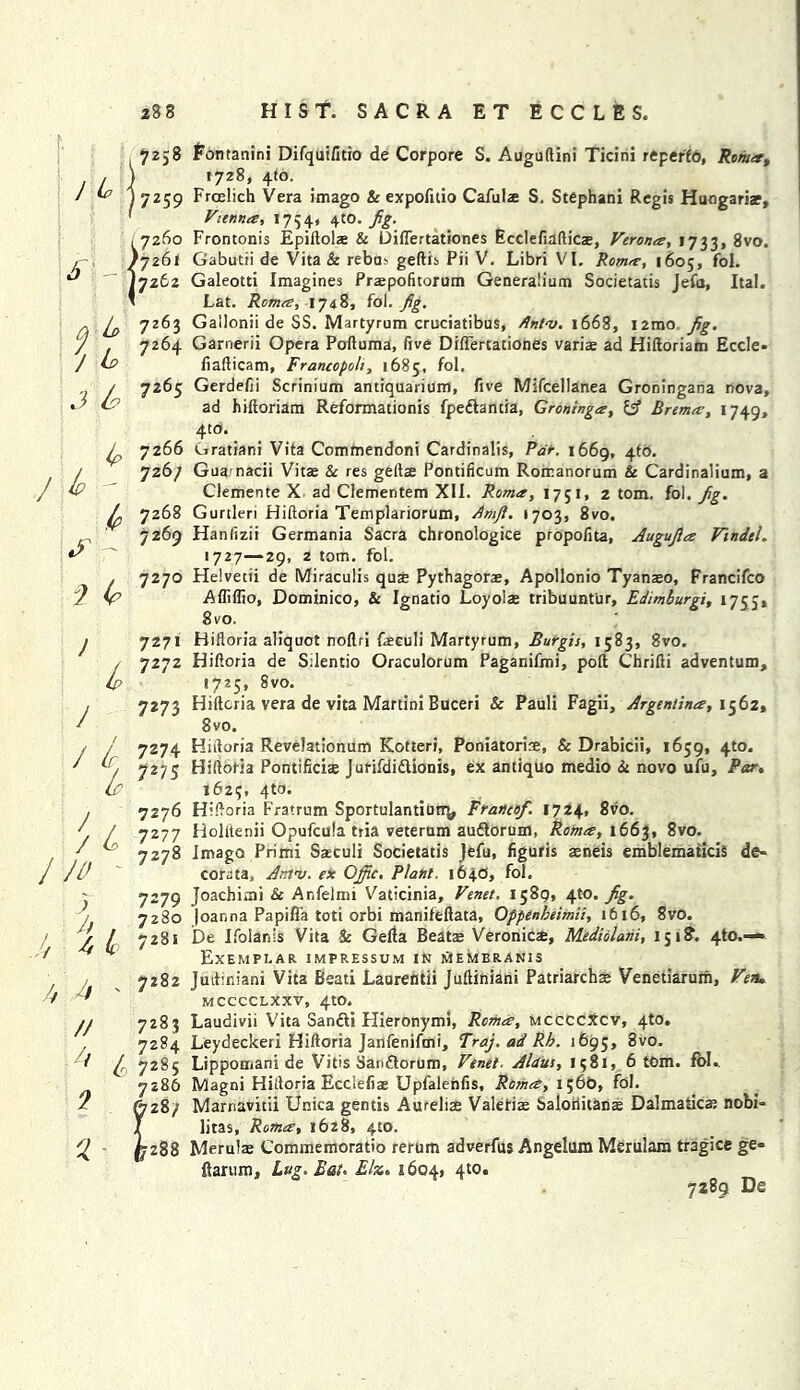 288 HIST. SACRA ET ECCLES.
7258 Fontanini Difquifitio de Corpore S. Auguftini Ticini reperto, Romæ,
1728, 4to.
7259 Frœlich Vera imago & expofitio Cafulæ S. Stephani Regis Hungariæ,
Viennæ, 1754, 4to. fig.
7260 Frontonis Epiftolæ & Differtationes Ecclefiafticæ, Veronæ, 1733, 8vo.
7261 Gabutii de Vita & rebus geftis Pii V. Libri VI. Romæ, 1605, fol.
7262 Galeotti Imagines Præpofitorum Generalium Societatis Jefu, Ital.
Lat. Romæ, 1748, fol. fig.
7263 Gallonii de SS. Martyrum cruciatibus, Antv. 1668, 12mo. fig.
7264 Garnerii Opera Poftuma, five Differtationes variæ ad Hiftoriam Eccle-
fiafticam, Francopoli, 1685, fol.
7265 Gerdefii Scrinium antiquarium, five Mifcellanea Groningana nova,
ad hiftoriam Reformationis fpectantia, Groningæ, & Bremæ, 1749,
4to.
7266 Gratiani Vita Commendoni Cardinalis, Par. 1669, 4to.
7267 Guarnacii Vitæ & res geftæ Pontificum Romanorum & Cardinalium, a
Clemente X. ad Clementem XII. Romæ, 1751, 2 tom. fol. fig.
7268 Gurtleri Hiftoria Templariorum, Amft. 1703, 8vo.
7269 Hanfizii Germania Sacra chronologice propofita, Auguftæ Vindel.
1727—29, 2 tom. fol.
7270 Helvetii de Miraculis quæ Pythagoræ, Apollonio Tyanæo, Francifco
Affiffio, Dominico, & Ignatio Loyolæ tribuuntur, Edimburgi, 1755,
8vo.
7271 Hiftoria aliquot noftri fæculi Martyrum, Burgis, 1583, 8vo.
7272 Hiftoria de Silentio Oraculorum Paganifmi, poft Chrifti adventum,
1725, 8vo.
7273 Hiftoria vera de vita Martini Buceri & Pauli Fagii, Argentinæ, 1562,
8vo.
7274 Hiftoria Revelationum Kotteri, Poniatoriæ, & Drabicii, 1659, 4to.
7275 Hiftoria Pontificiæ Jurifdictionis, ex antiquo medio & novo ufu, Par.
1625, 4to.
7276 Hiftoria Fratrum Sportulantium, Francof. 1724, 8vo.
7277 Holftenii Opufcula tria veterum auctorum, Romæ, 1663, 8vo.
7278 Imago Primi Sæculi Societatis Jefu, figuris æneis emblematicis de-
corata, Antv. ex Offic. Plant. 1640, fol.
7279 Joachimi & Anfelmi Vaticinia, Venet. 1589, 4to. fig.
7280 Joanna Papiffa toti orbi manifeftata, Oppenheimii, 1616, 8vo.
7281 De Ifolanis Vita & Gefta Beatæ Veronicæ, Mediolani, 1518. 4to.—
EXEMPLAR IMPRESSUM IN MEMBRANIS
7282 Juftiniani Vita Beati Laurentii Juftiniani Patriarchæ Venetiarum, Ven.
MCCCCLXXV, 4to.
7283 Laudivii Vita Sancti Hieronymi, Romæ, MCCCCXCV, 4to.
7284 Leydeckeri Hiftoria Janfenifmi, Traj. ad Rh. 1695, 8vo.
7285 Lippomani de Vitis Sanctorum, Venet. Aldus, 1581, 6 tom. fol.
7286 Magni Hiftoria Ecclefiæ Upfalenfis, Romæ, 1560, fol.
7287 Marnavitii Unica gentis Aureliæ Valeriæ Salonitanæ Dalmaticæ nobi-
litas, Romæ, 1628, 4to.
7288 Merulæ Commemoratio rerum adverfus Angelum Merulam tragice ge-
ftarum, Lug. Bat. Elz. 1604, 4to.
7289 De